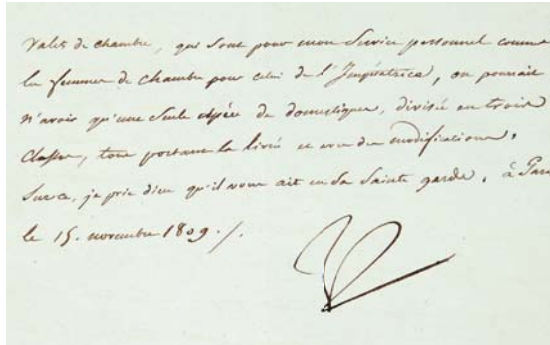 Valets de chambre, qui sont pour mon Service personnel comme
les femmes de chambre pour celui de l'Impératrice, on pourrait
n'avoir qu'une Seule espèce de domestiques, divisée en trois
Classes, tous portant la livrée avec des modifications.
Sur ce, je prie dieu qu'il vous ait en Sa Sainte garde, à Paris
le 15. novembre 1809./.